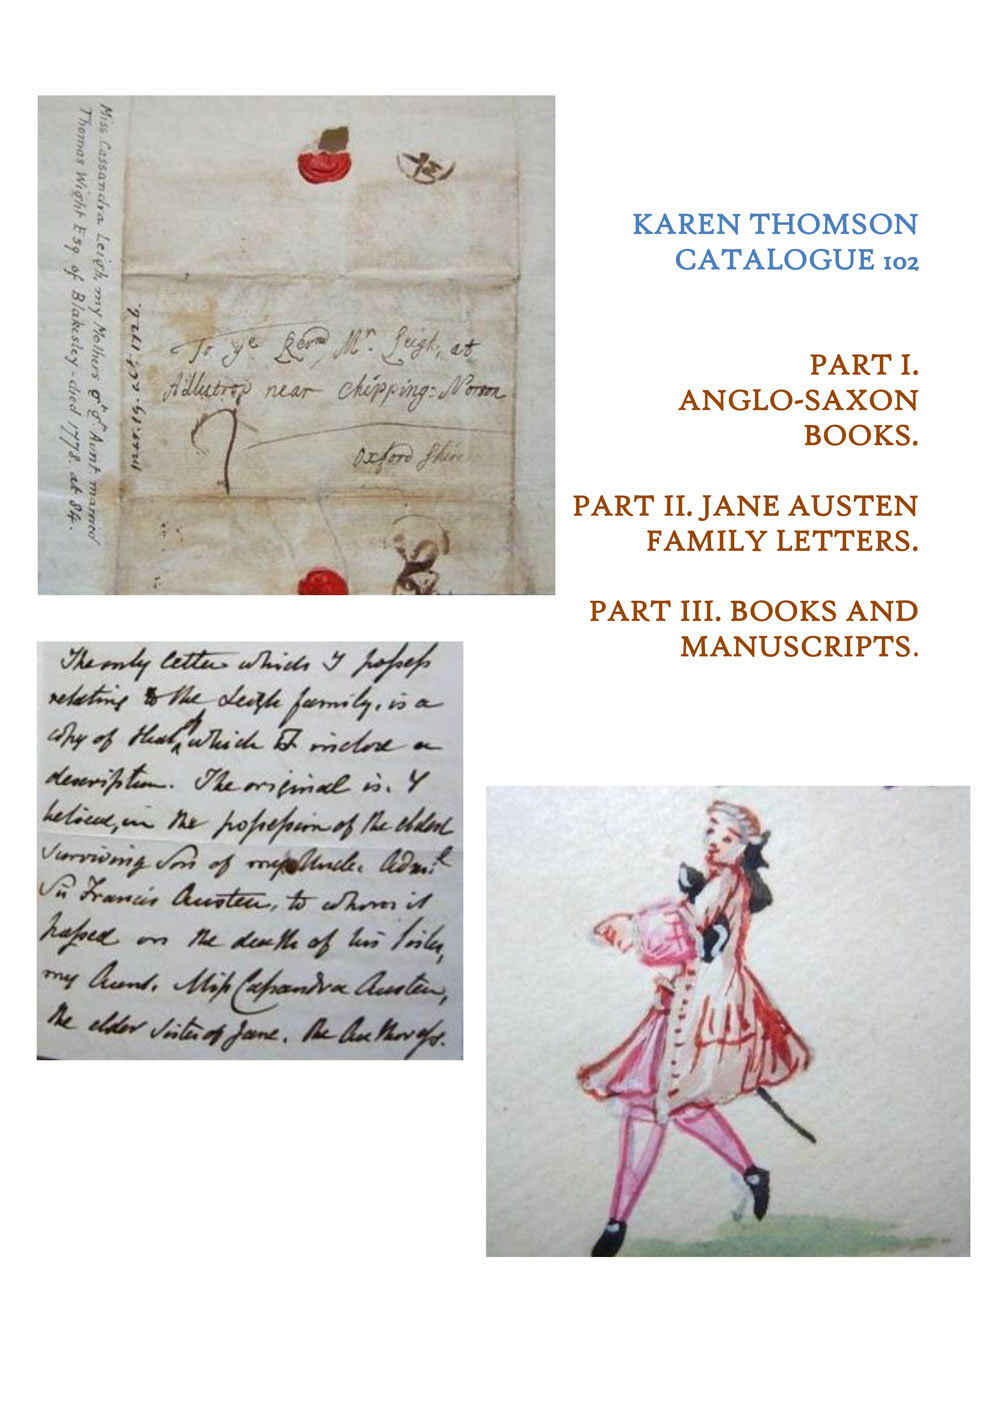 KAREN THOMSON
CATALOGUE 102
PART I.
ANGLO-SAXON
BOOKS.
PART II. JANE AUSTEN
FAMILY LETTERS.
PART III. BOOKS AND
MANUSCRIPTS.
Miss Cassandra Leigh, my Mothers Gt Gt Aunt married
Thomas Wight Esq of Blakesley - died 1778. at 84.
To ye Revnd Mr. Leigh, at
Adlestrop near Chipping-Norton
Oxford Shire
The only letter which I possess
relating to the Leigh family, is a
copy of that, which I inclose a
description. The original is, I
believe, in the possession of the eldest
surviving Son of my Uncle Adml
Sir Francis Austen, to whom it
passed on the death of his Sister,
my Aunt, Miss Cassandra Austen,
the elder sister of Jane, the Authoress.